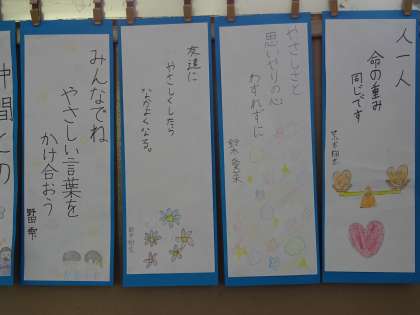 人一人
命の重み
同じです
やさしさと
思いやりの心
わすれずに
鈴木 愛菜
友達に
やさしくしたら
なかよくなる。
みんなでね
やさしい言葉を
かけ合おう
野田 雫
仲間との